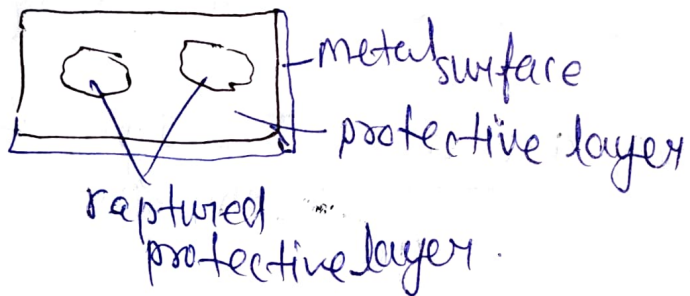 metal surface
protective layer
raptured
protective layer.